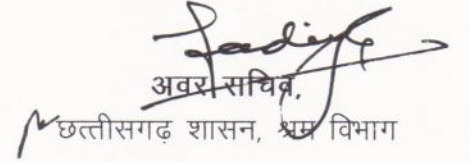 अवर सचिव,
छत्तीसगढ़ शासन, श्रम विभाग